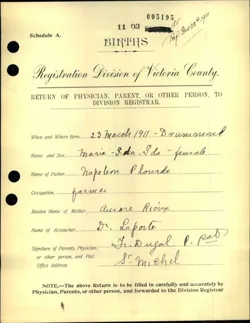 005195
11 03
Schedule A.
BIRTHS
Registration Division of Victoria County.
RETURN OF PHYSICIAN, PARENT, OR OTHER PERSON, TO
DIVISION REGISTRAR.
When and Where Born, 23 March 1911 - Drummond
Name and Sex, Marie-Ida-Ida - female
Name of Father, Napoleon Plourde
Occupation, farmer
Maiden Name of Mother, Aurore Rioux
Name of Accoucher, Dr. Laporte
Signature of Physician, Parent,
or other person, and Post
Office Address. Fr. Dugal P.
St Michel
NOTE.—The above Return is to be filled in carefully and accurately by
Physician, Parents, or other person, and forwarded to the Division Registrar